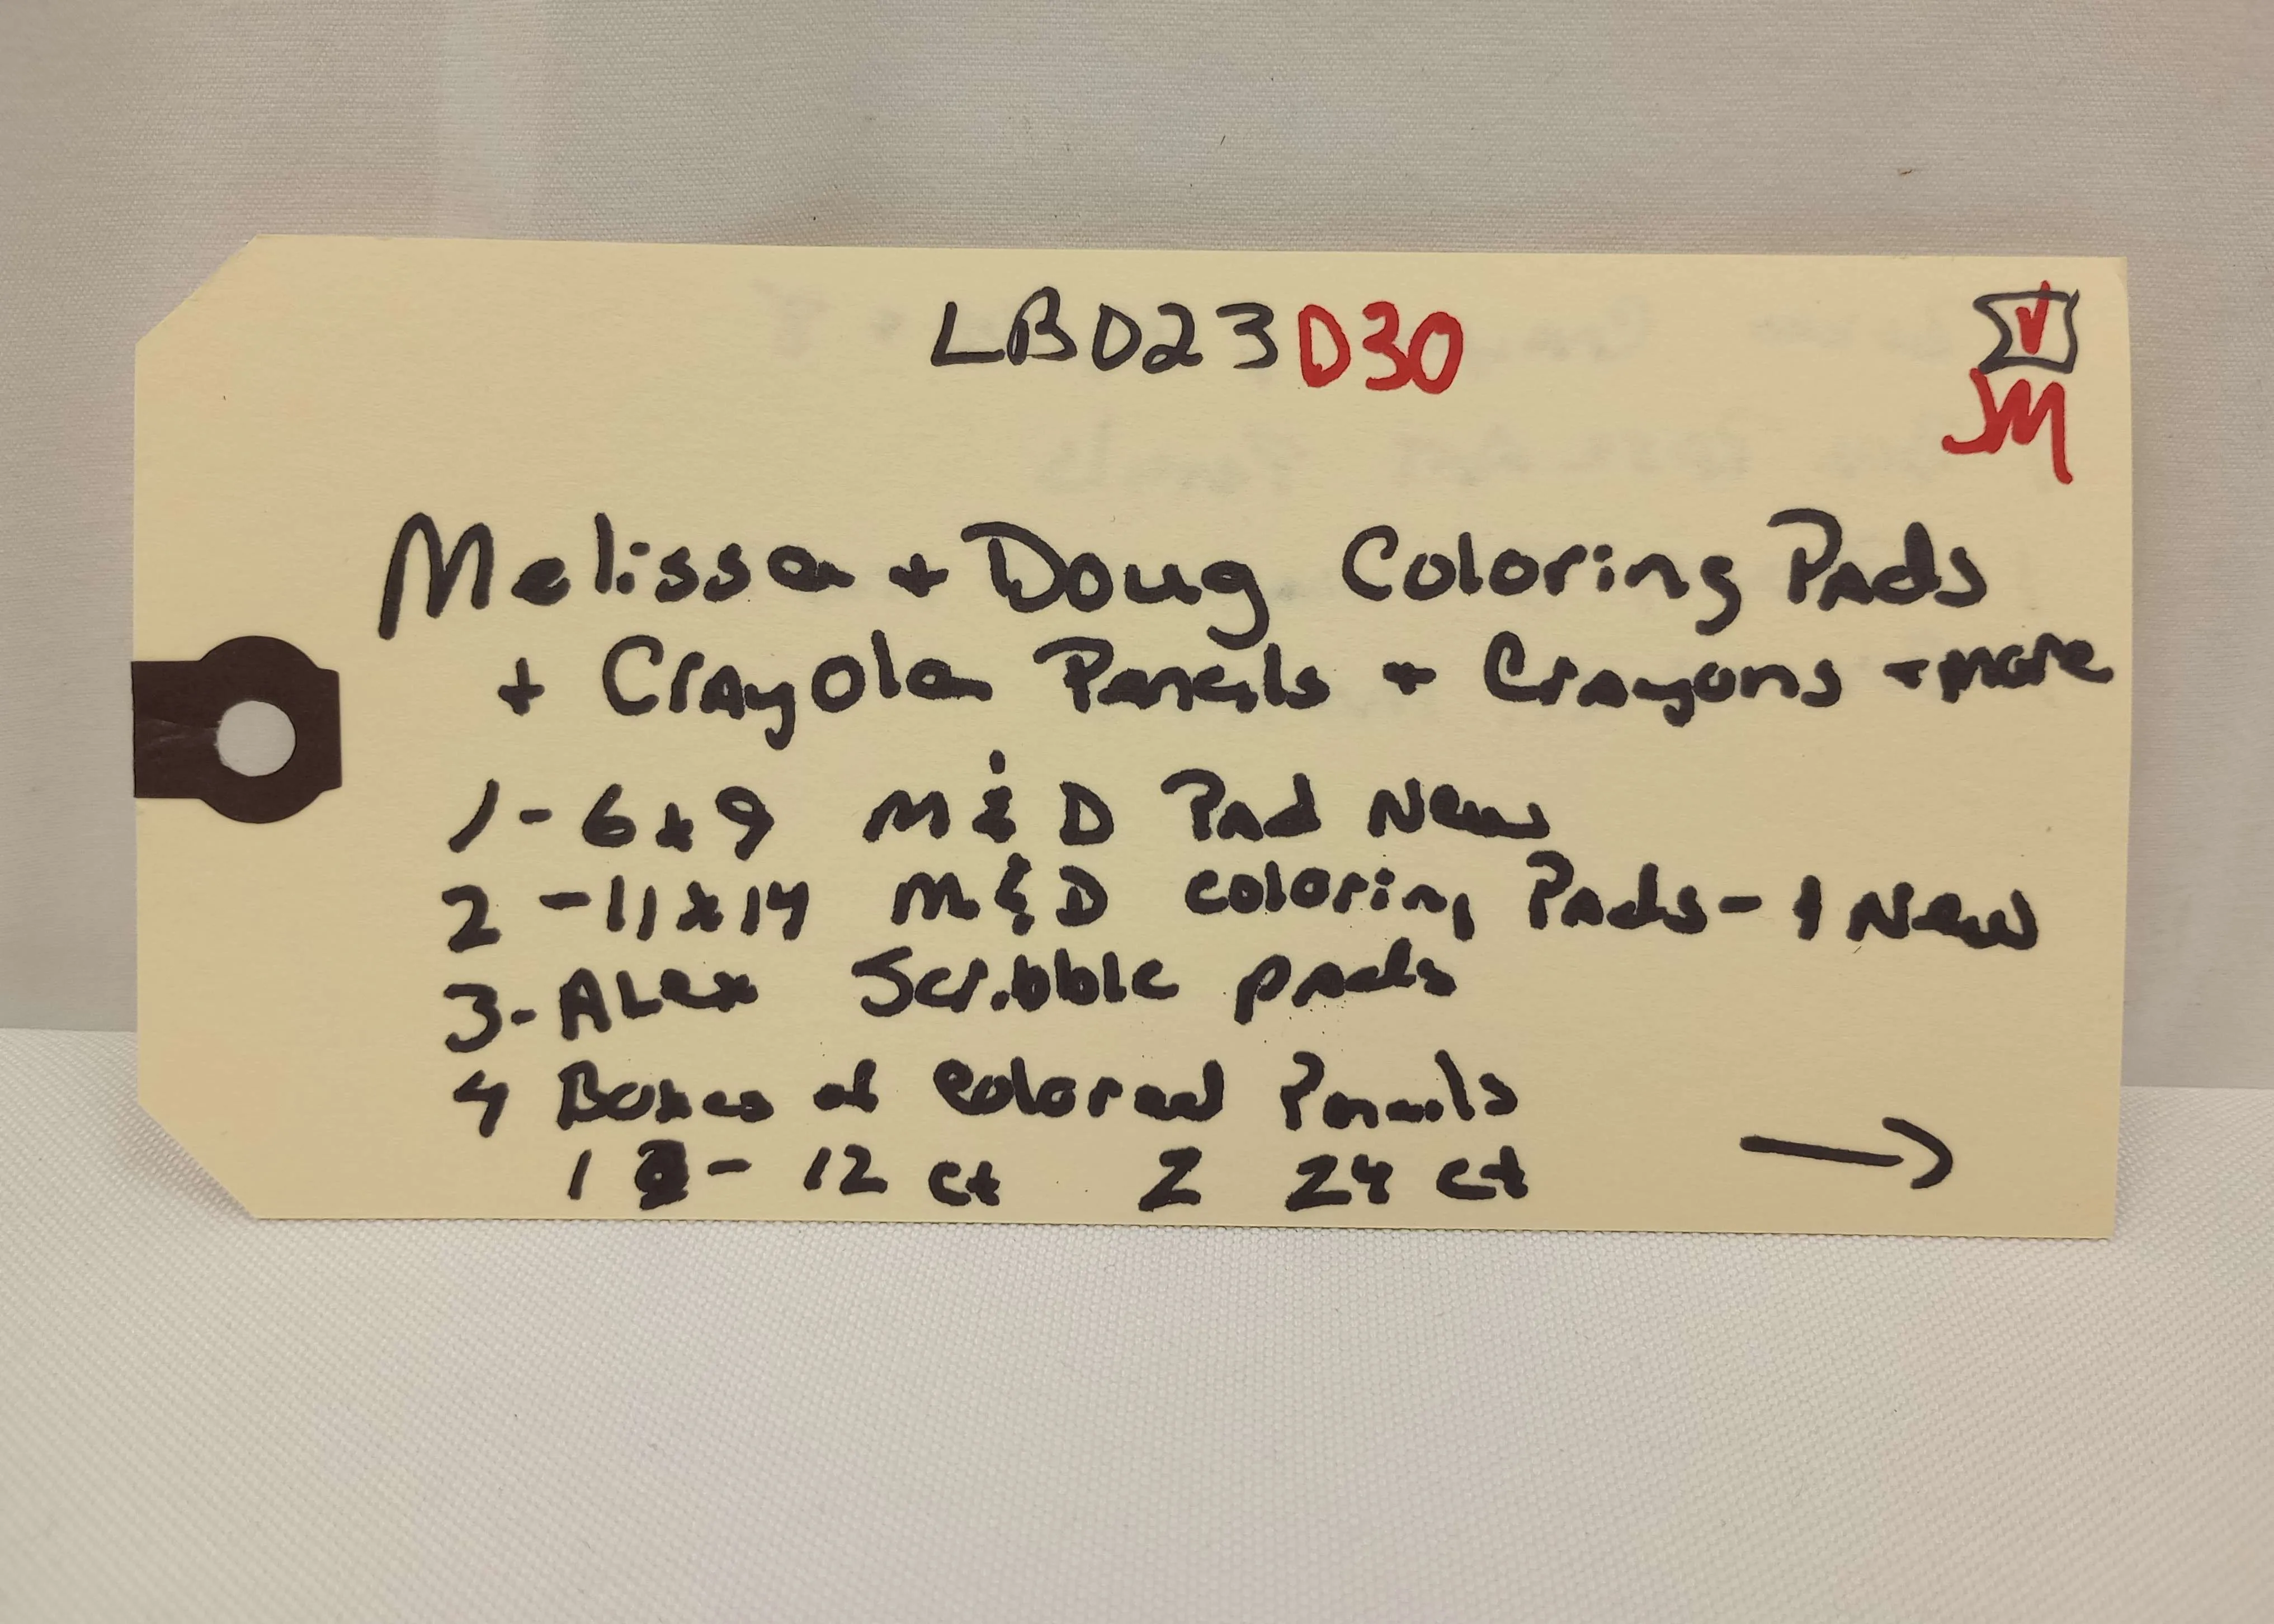 LBD23D30
JM
Melissa + Doug Coloring Pads
+ Crayola Pencils + Crayons + more
1 - 6x9 M & D Pad New
2 - 11x14 M & D coloring Pads - 1 New
3 - ALex Scribble pads
4 Boxes of Colored Pencils
1 - 12 ct 2 24 ct